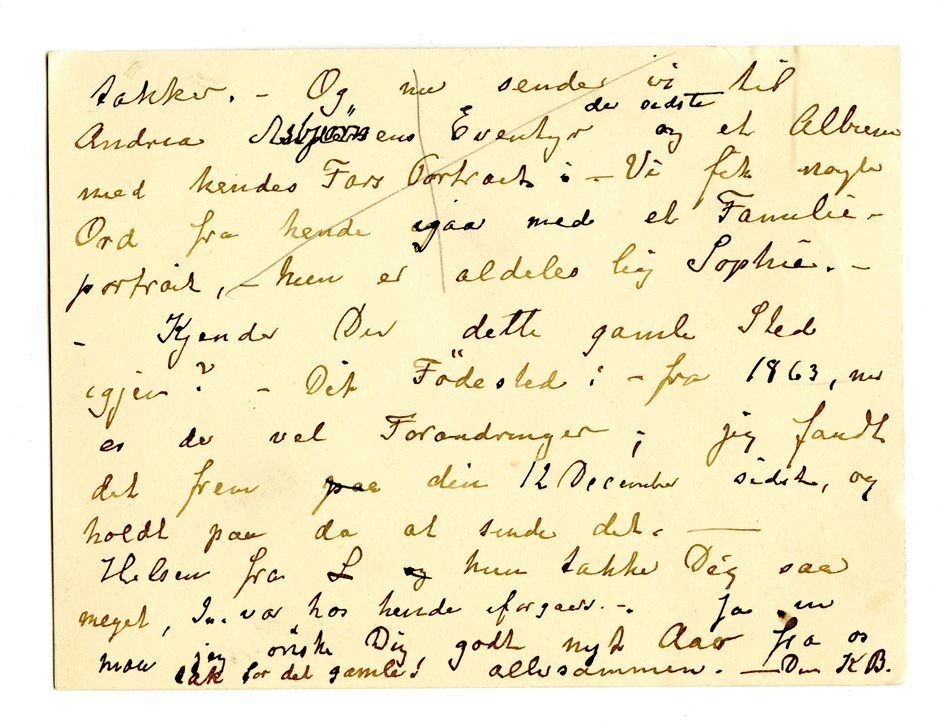 takker. – Og nu sender vi til
de sidste
Andrea Asbjörnsens Eventyr og et Album
med hendes Fars Portrait i – Vi fik nogle
Ord fra hende igaar med et Familie-
portrait, – hun er aldeles lig Sophie. –
– Kjender Du dette gamle Sted
igjen? – Dit Födested! – fra 1863, nu
er der vel Forandringer; jeg fandt
det frem paa din 12 December sidst, og
holdt paa da at sende det. —
Hilsen fra L og hun takke Dig saa
meget, I. var hos hende iforgaars. – Ja nu
maa jeg önske Dig godt nyt Aar fra os
tak for det gamle! allesammen. – Din KB.